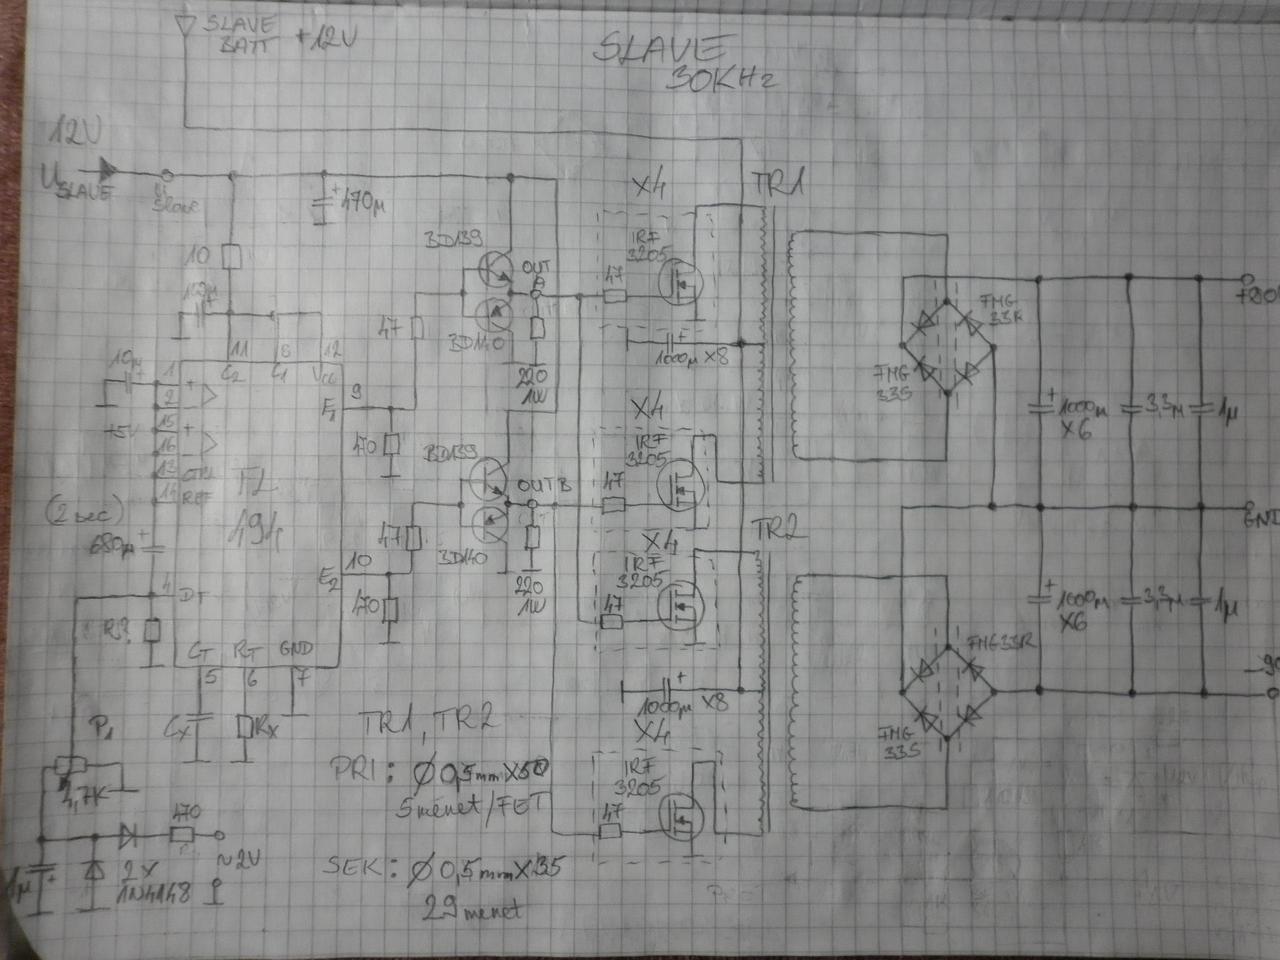 SLAVE
BATT +12V
SLAVE
30KHz
12V
U SLAVE
Slave
470µ
10
X4
TR1
BD139
OUT
A
IRF
3205
47
47
BD140
220
1W
1000µ X8
11
8
12
C2
C1
VCC
10µ
1
2
15
16
13
14
+
+
+5V
CTRL
REF
TL
494
9
E1
470
X4
IRF
3205
47
BD139
OUT B
47
BD140
220
1W
10
E2
470
(2 sec)
680µ
4
DT
R?
CT
RT
GND
5
6
7
Cx
Rx
P1
4,7K
470
~2V
2X
1N4148
1µ
X4
TR2
IRF
3205
47
1000µ X8
X4
IRF
3205
47
FMG
33R
FMG
33S
1000µ
X6
3,3µ
1µ
GND
1000µ
X6
3,3µ
1µ
FMG33R
FMG
33S
TR1, TR2
PRI: Ø0,5mmX50
5menet/FET
SEK: Ø0,5mmX35
29menet